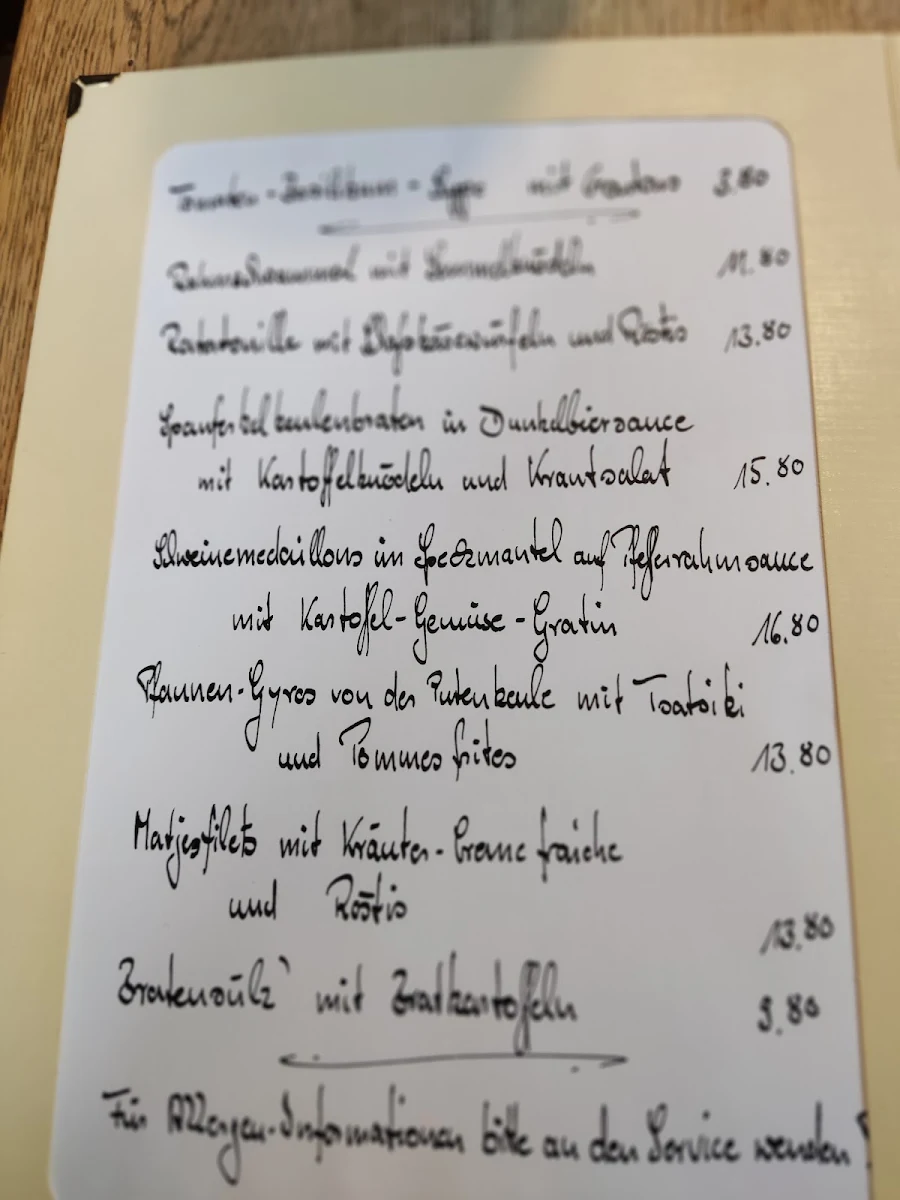 Tomaten-Basilikum-Suppe mit Croutons 3.80
Rahmschwammerl mit Semmelknödeln 11.80
Ratatouille mit Schafskäsewürfeln und Röstis 13.80
Spanferkelkeulenbraten in Dunkelbiersauce
mit Kartoffelknödeln und Krautsalat 15.80
Schweinemedaillons im Speckmantel auf Pfefferrahmsauce
mit Kartoffel-Gemüse-Gratin 16.80
Pfannen-Gyros von der Putenkeule mit Tsatsiki
und Pommes frites 13.80
Matjesfilets mit Kräuter-Creme fraiche
und Röstis
13.80
Bratensülz' mit Bratkartoffeln 9.80
Für Allergen-Informationen bitte an den Service wenden!